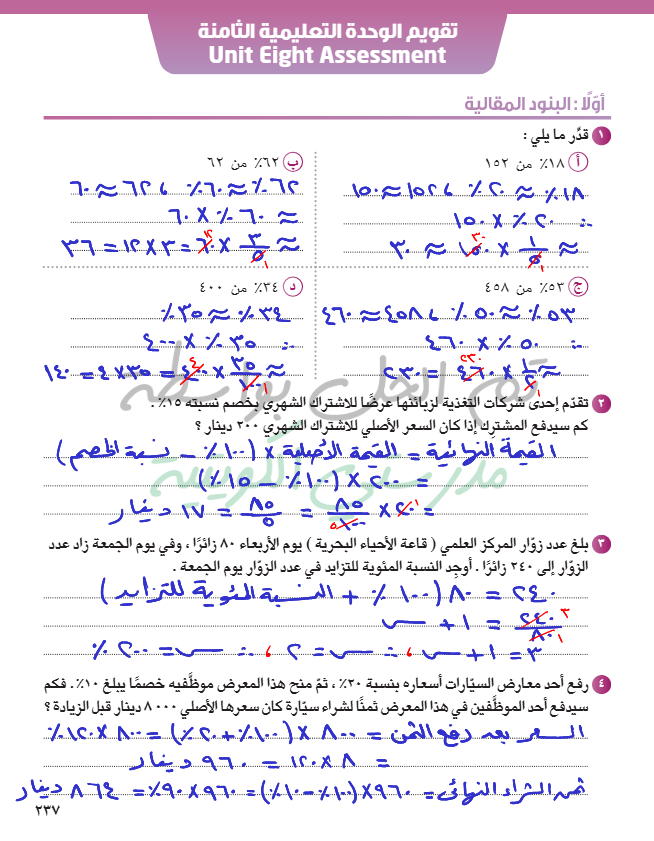 تقويم الوحدة التعليمية الثامنة
Unit Eight Assessment
أوّلًا : البنود المقالية
١ قدِّر ما يلي :
أ ١٨٪ من ١٥٢
١٨٪ ≈ ٢٠٪ ، ١٥٢ ≈ ١٥٠
∴ ٢٠٪ × ١٥٠
≈ ١/٥ × ١٥٠ ≈ ٣٠
ب ٦٢٪ من ٦٢
٦٢٪ ≈ ٦٠٪ ، ٦٢ ≈ ٦٠
≈ ٦٠٪ × ٦٠
≈ ٣/٥ × ٦٠ = ٣ × ١٢ = ٣٦
ج ٥٣٪ من ٤٥٨
٥٣٪ ≈ ٥٠٪ ، ٤٥٨ ≈ ٤٦٠
∴ ٥٠٪ × ٤٦٠
≈ ١/٢ × ٤٦٠ = ٢٣٠
د ٣٤٪ من ٤٠٠
٣٤٪ ≈ ٣٥٪
∴ ٣٥٪ × ٤٠٠
≈ ٣٥/١٠٠ × ٤٠٠ = ٣٥ × ٤ = ١٤٠
تم الحل بواسطة
مدرستي الكويتية
٢ تقدّم إحدى شركات التغذية لزبائنها عرضًا للاشتراك الشهري بخصم نسبته ١٥٪ .
كم سيدفع المشترك إذا كان السعر الأصلي للاشتراك الشهري ٢٠٠ دينار ؟
القيمة النهائية = القيمة الأصلية × (١٠٠٪ − نسبة الخصم)
= ٢٠٠ × (١٠٠٪ − ١٥٪)
= ٢٠٠ × ٨٥/٥٠٠ = ٨٥/٥ = ١٧ دينار
٣ بلغ عدد زوّار المركز العلمي ( قاعة الأحياء البحرية ) يوم الأربعاء ٨٠ زائرًا ، وفي يوم الجمعة زاد عدد
الزوّار إلى ٢٤٠ زائرًا . أوجِد النسبة المئوية للتزايد في عدد الزوّار يوم الجمعة .
٢٤٠ = ٨٠ (١٠٠٪ + النسبة المئوية للتزايد)
٢٤٠/٨٠ = ١ + س
٣ = ١ + س ، ∴ س = ٢ ، ∴ س = ٢٠٠٪
٤ رفع أحد معارض السيّارات أسعاره بنسبة ٢٠٪ ، ثمّ منح هذا المعرض موظّفيه خصمًا يبلغ ١٠٪ . فكم
سيدفع أحد الموظّفين في هذا المعرض ثمنًا لشراء سيّارة كان سعرها الأصلي ٨٠٠٠ دينار قبل الزيادة ؟
السعر بعد رفع الثمن = ٨٠٠ × (١٠٠٪ + ٢٠٪) = ٨٠٠ × ١٢٠٪
= ٨ × ١٢٠ = ٩٦٠ دينار
ثمن الشراء النهائي = ٩٦٠ × (١٠٠٪ − ١٠٪) = ٩٦٠ × ٩٠٪ = ٨٦٤ دينار
٢٣٧